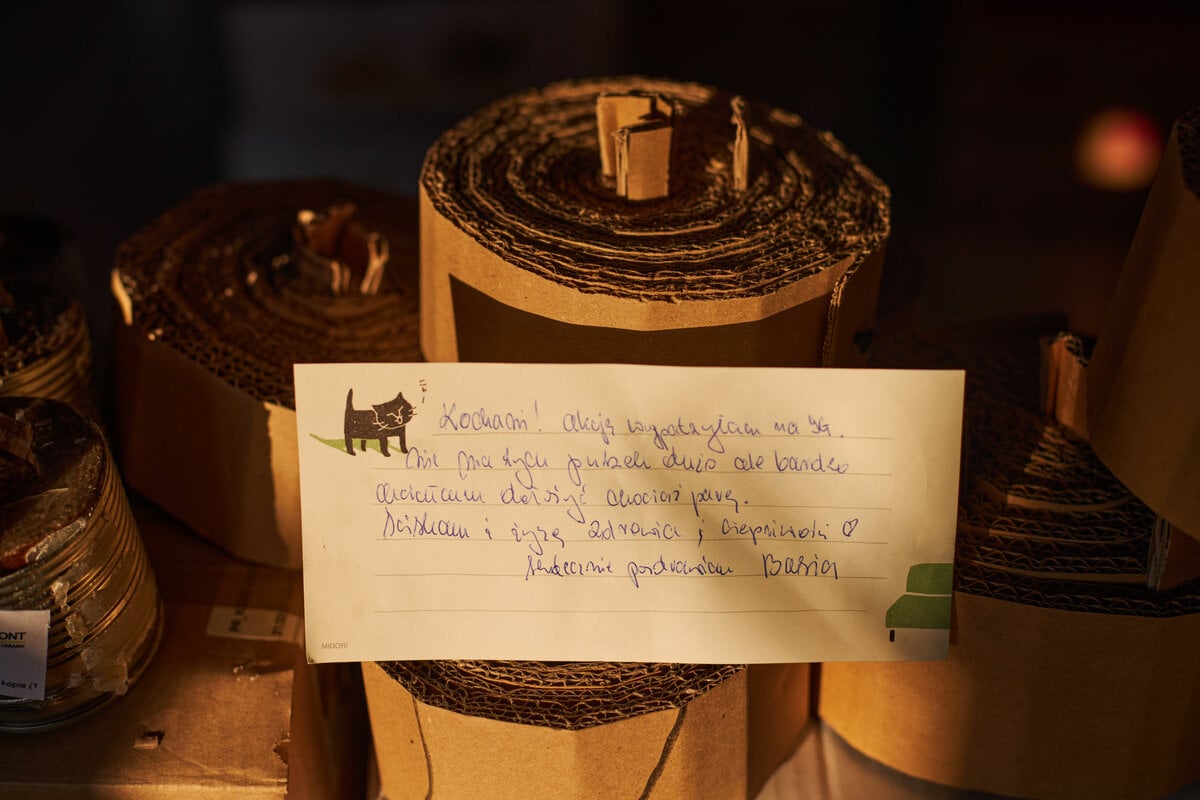 Kochani! Akcję wypatrzyłam na IG.
Nie ma tych puszek dużo ale bardzo
chciałam chociaż parę.
Ściskam i życzę zdrowia i cierpliwości ♡
Serdecznie pozdrawiam Basia
MIDORI
ONT
kopia (1